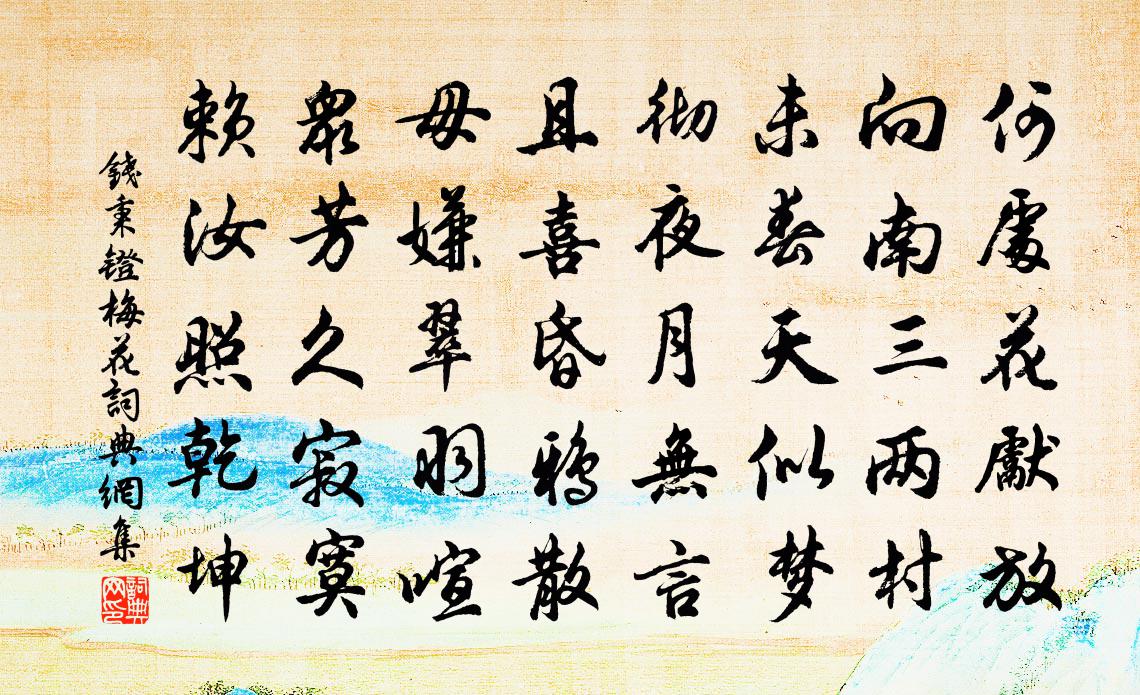 何處花獻放
向南三两村
未春天似梦
彻夜月無言
且喜昏鸦散
毋嫌翠羽喧
眾芳久寂寞
赖汝照乾坤
錢秉鐙梅花詞典網集
詞典网印